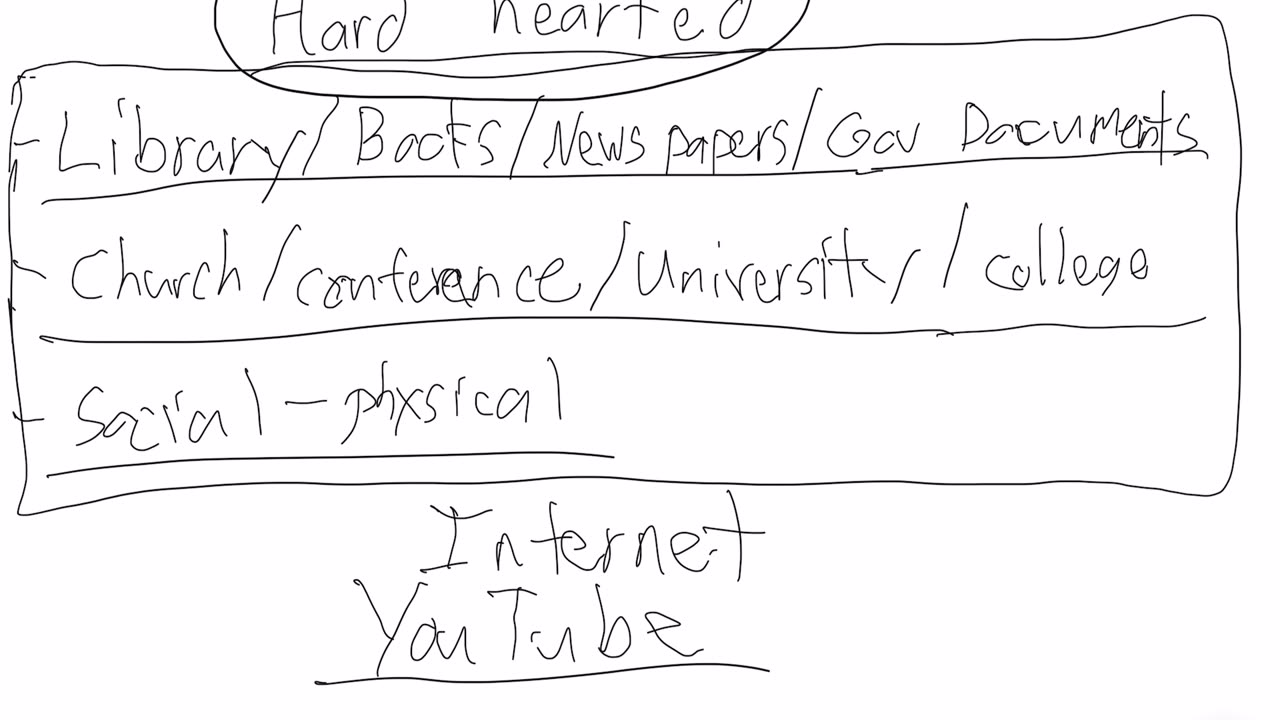 Hard hearted
- Library/Books/News papers/Gov Documents
- Church/conference/University/college
- Social - physical
Internet
YouTube